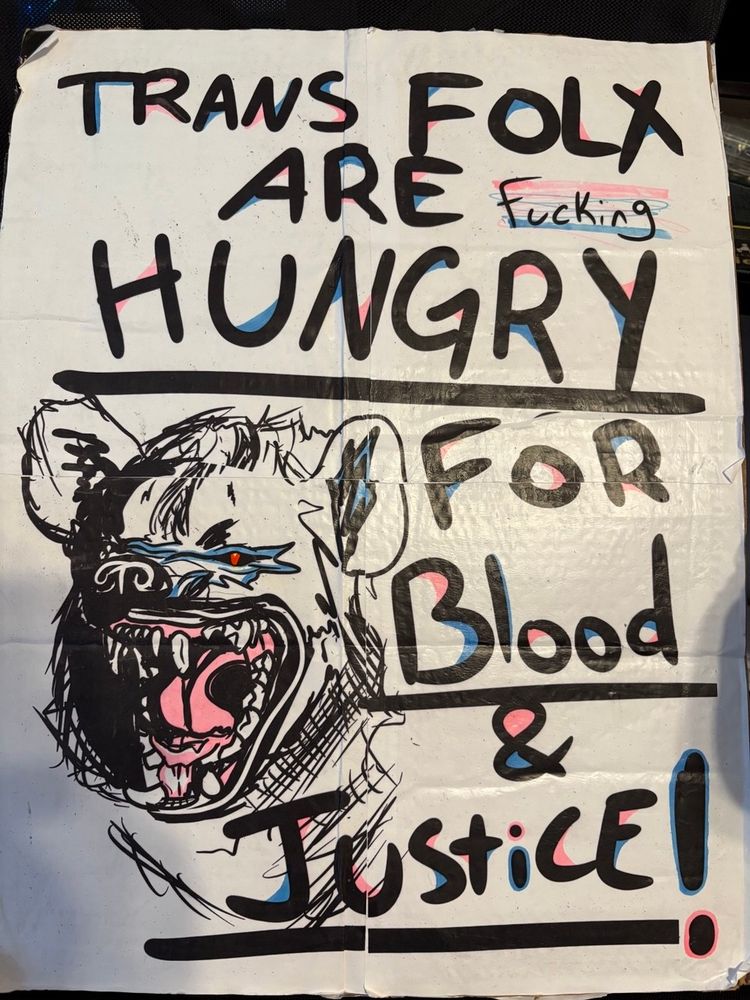 TRANS FOLX
ARE Fucking
HUNGRY
FOR
Blood
&
JUSTiCE!